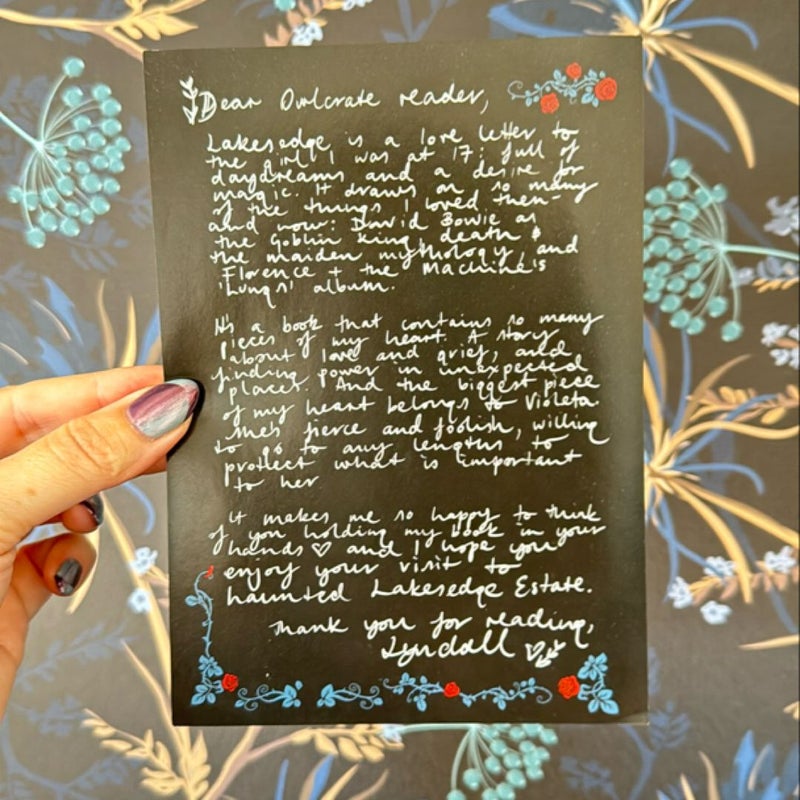 Dear Owlcrate reader,
Lakesedge is a love letter to
the girl I was at 17: full of
daydreams and a desire for
magic. It draws on so many
of the things I loved then–
and now: David Bowie as
the Goblin king, death &
the maiden mythology, and
Florence + the Machine's
'Lungs' album.
It's a book that contains so many
pieces of my heart. A story
about love and grief, and
finding power in unexpected
places. And the biggest piece
of my heart belongs to Violeta.
She's fierce and foolish, willing
to go to any lengths to
protect what is important
to her
It makes me so happy to think
of you holding my book in your
hands ♡ and I hope you
enjoy your visit to
haunted Lakesedge Estate.
Thank you for reading,
Lyndall ♡